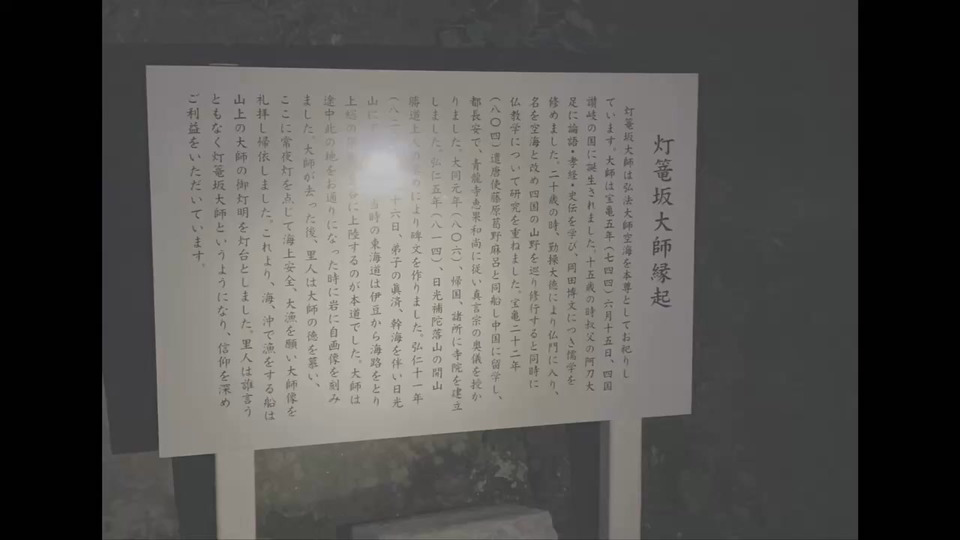 灯篭坂大師縁起
灯篭坂大師は弘法大師空海を本尊としてお祀りし
ています。大師は宝亀五年(七四四)六月十五日、四国
讃岐の国に誕生されました。十五歳の時叔父の阿刀大
足に論語・孝経・史伝を学び、岡田博文につき儒学を
修めました。二十歳の時、勤操大徳により仏門に入り、
名を空海と改め四国の山野を巡り修行すると同時に
仏教学について研究を重ねました。宝亀二十二年
(八〇四)遣唐使藤原葛野麻呂と同船し中国に留学し、
都長安で、青龍寺恵果和尚に従い真言宗の奥儀を授か
りました。大同元年(八〇六)、帰国、諸所に寺院を建立
しました。弘仁五年(八一四)、日光補陀落山の開山
勝道上人の により碑文を作りました。弘仁十一年
(八二 十六日、弟子の眞済、幹海を伴い日光
山に 当時の東海道は伊豆から海路をとり
上総の に上陸するのが本道でした。大師は
途中此の地をお通りになった時に岩に自画像を刻み
ました。大師が去った後、里人は大師の徳を慕い、
ここに常夜灯を点じて海上安全、大漁を願い大師像を
礼拝し帰依しました。これより、海、沖で漁をする船は
山上の大師の御灯明を灯台としました。里人は誰言う
ともなく灯篭坂大師というようになり、信仰を深め
ご利益をいただいています。